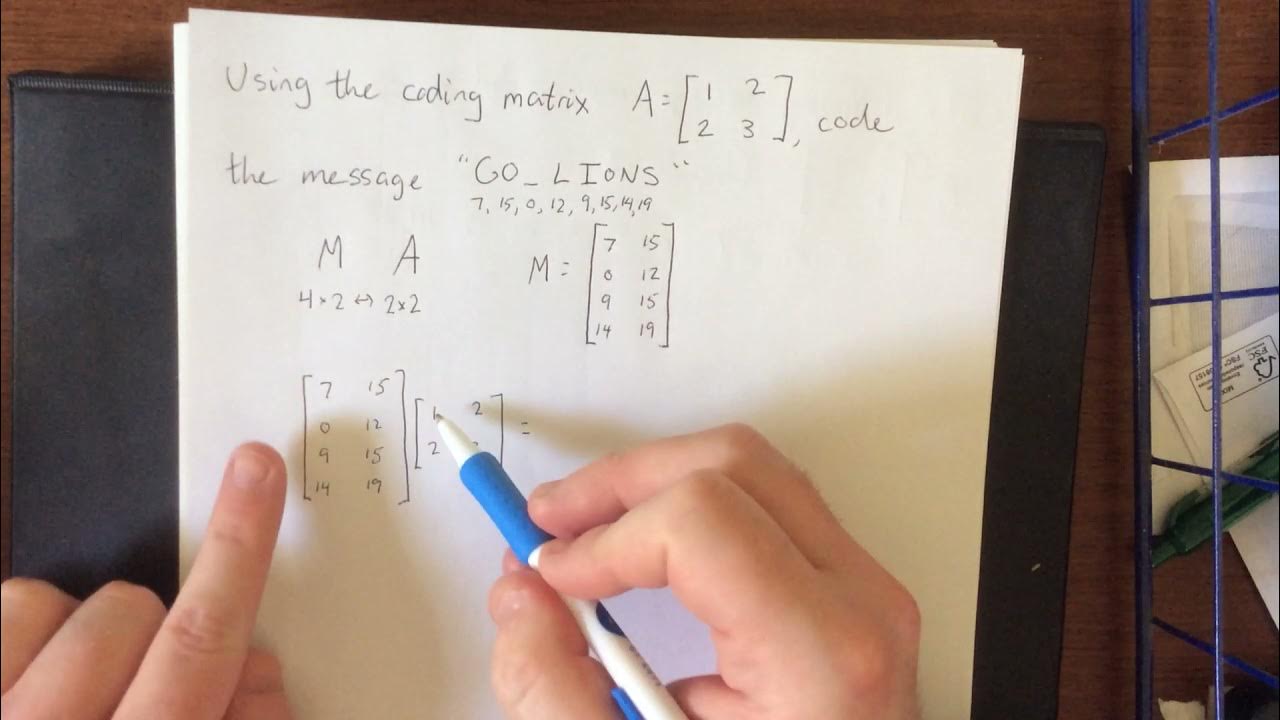 Using the coding matrix A = [ 1 2
2 3 ], code
the message "GO_LIONS"
7, 15, 0, 12, 9, 15, 14, 19
M A
4×2 ↔ 2×2
M = [ 7 15
0 12
9 15
14 19 ]
[ 7 15
0 12
9 15
14 19 ] [ 1 2
2 ] =
FSC
MIX